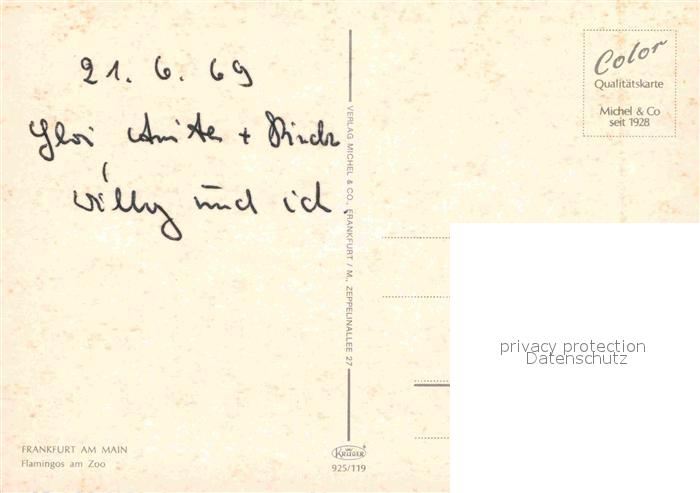 21. 6. 69
+
Willy und ich.
VERLAG MICHEL & CO., FRANKFURT / M., ZEPPELINALLEE 27
Color
Qualitätskarte
Michel & Co
seit 1928
privacy protection
Datenschutz
FRANKFURT AM MAIN
Flamingos am Zoo
KRÜGER
925/119